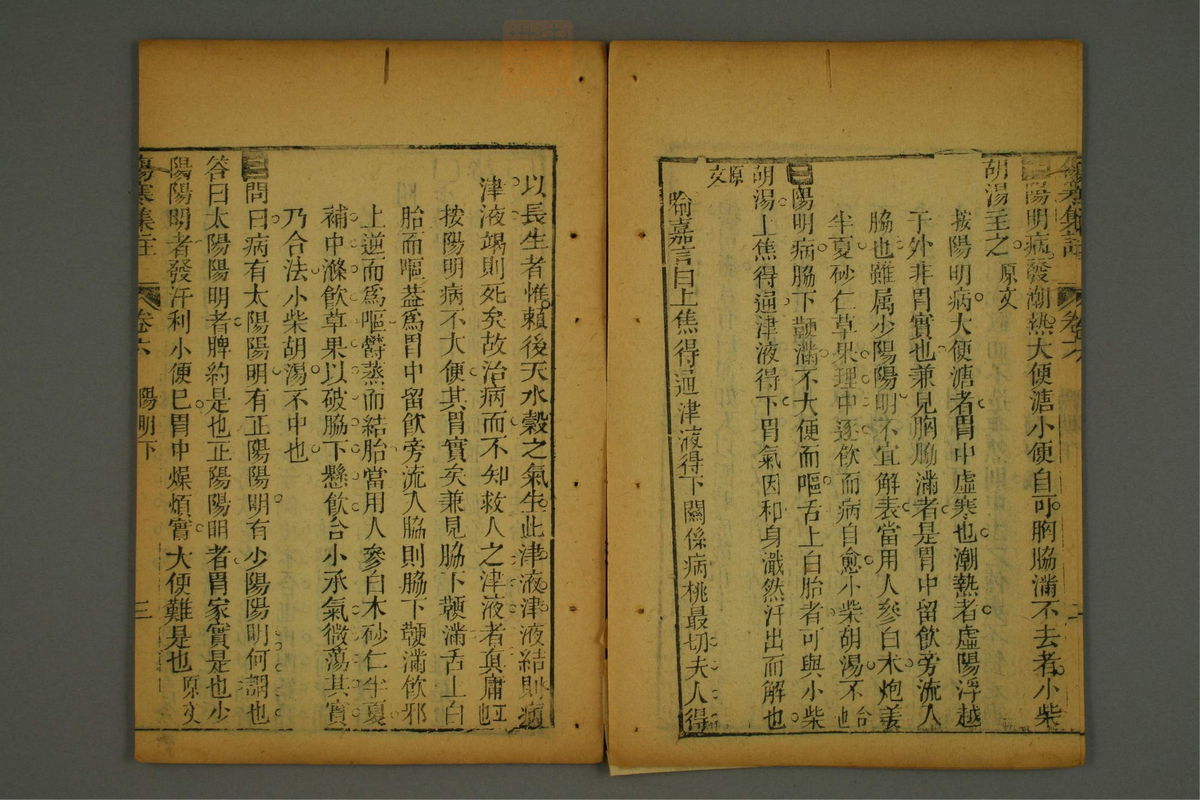 陽明病發潮熱大便溏小便自可胸脇滿不去者小柴
胡湯主之 原文
按陽明病大便溏者胃中虛寒也潮熱者虛陽浮越
于外非胃實也兼見胸脇滿者是胃中留飲旁流入
脇也雖属少陽陽明不宜解表當用人參白术炮姜
半夏砂仁草果理中逐飲而病自愈小柴胡湯不
陽明病脇下鞕滿不大便而嘔舌上白胎者可與小柴
胡湯上焦得通津液得下胃氣因和身濈然汗出而解也
原文
喻嘉言曰上焦得通津液得下關係病桃最切夫人得
以長生者惟賴後天水穀之氣生此津液津液結則病
津液竭則死矣故治病而不知救人之津液者真庸工也
按陽明病不大便其胃實矣兼見脇下鞕滿舌上白
胎而嘔葢為胃中留飲旁流入脇則脇下鞕滿飲邪
上逆而為嘔欝蒸而結胎當用人參白术砂仁半夏
補中滌飲草果以破脇下懸飲合小承氣微蕩其實
乃合法小柴胡湯不中也
問曰病有太陽陽明有正陽陽明有少陽陽明何謂也
答曰太陽陽明者脾約是也正陽陽明者胃家實是也少
陽陽明者發汗利小便已胃中燥煩實大便難是也 原文
傷寒集註 卷六 陽明下 三